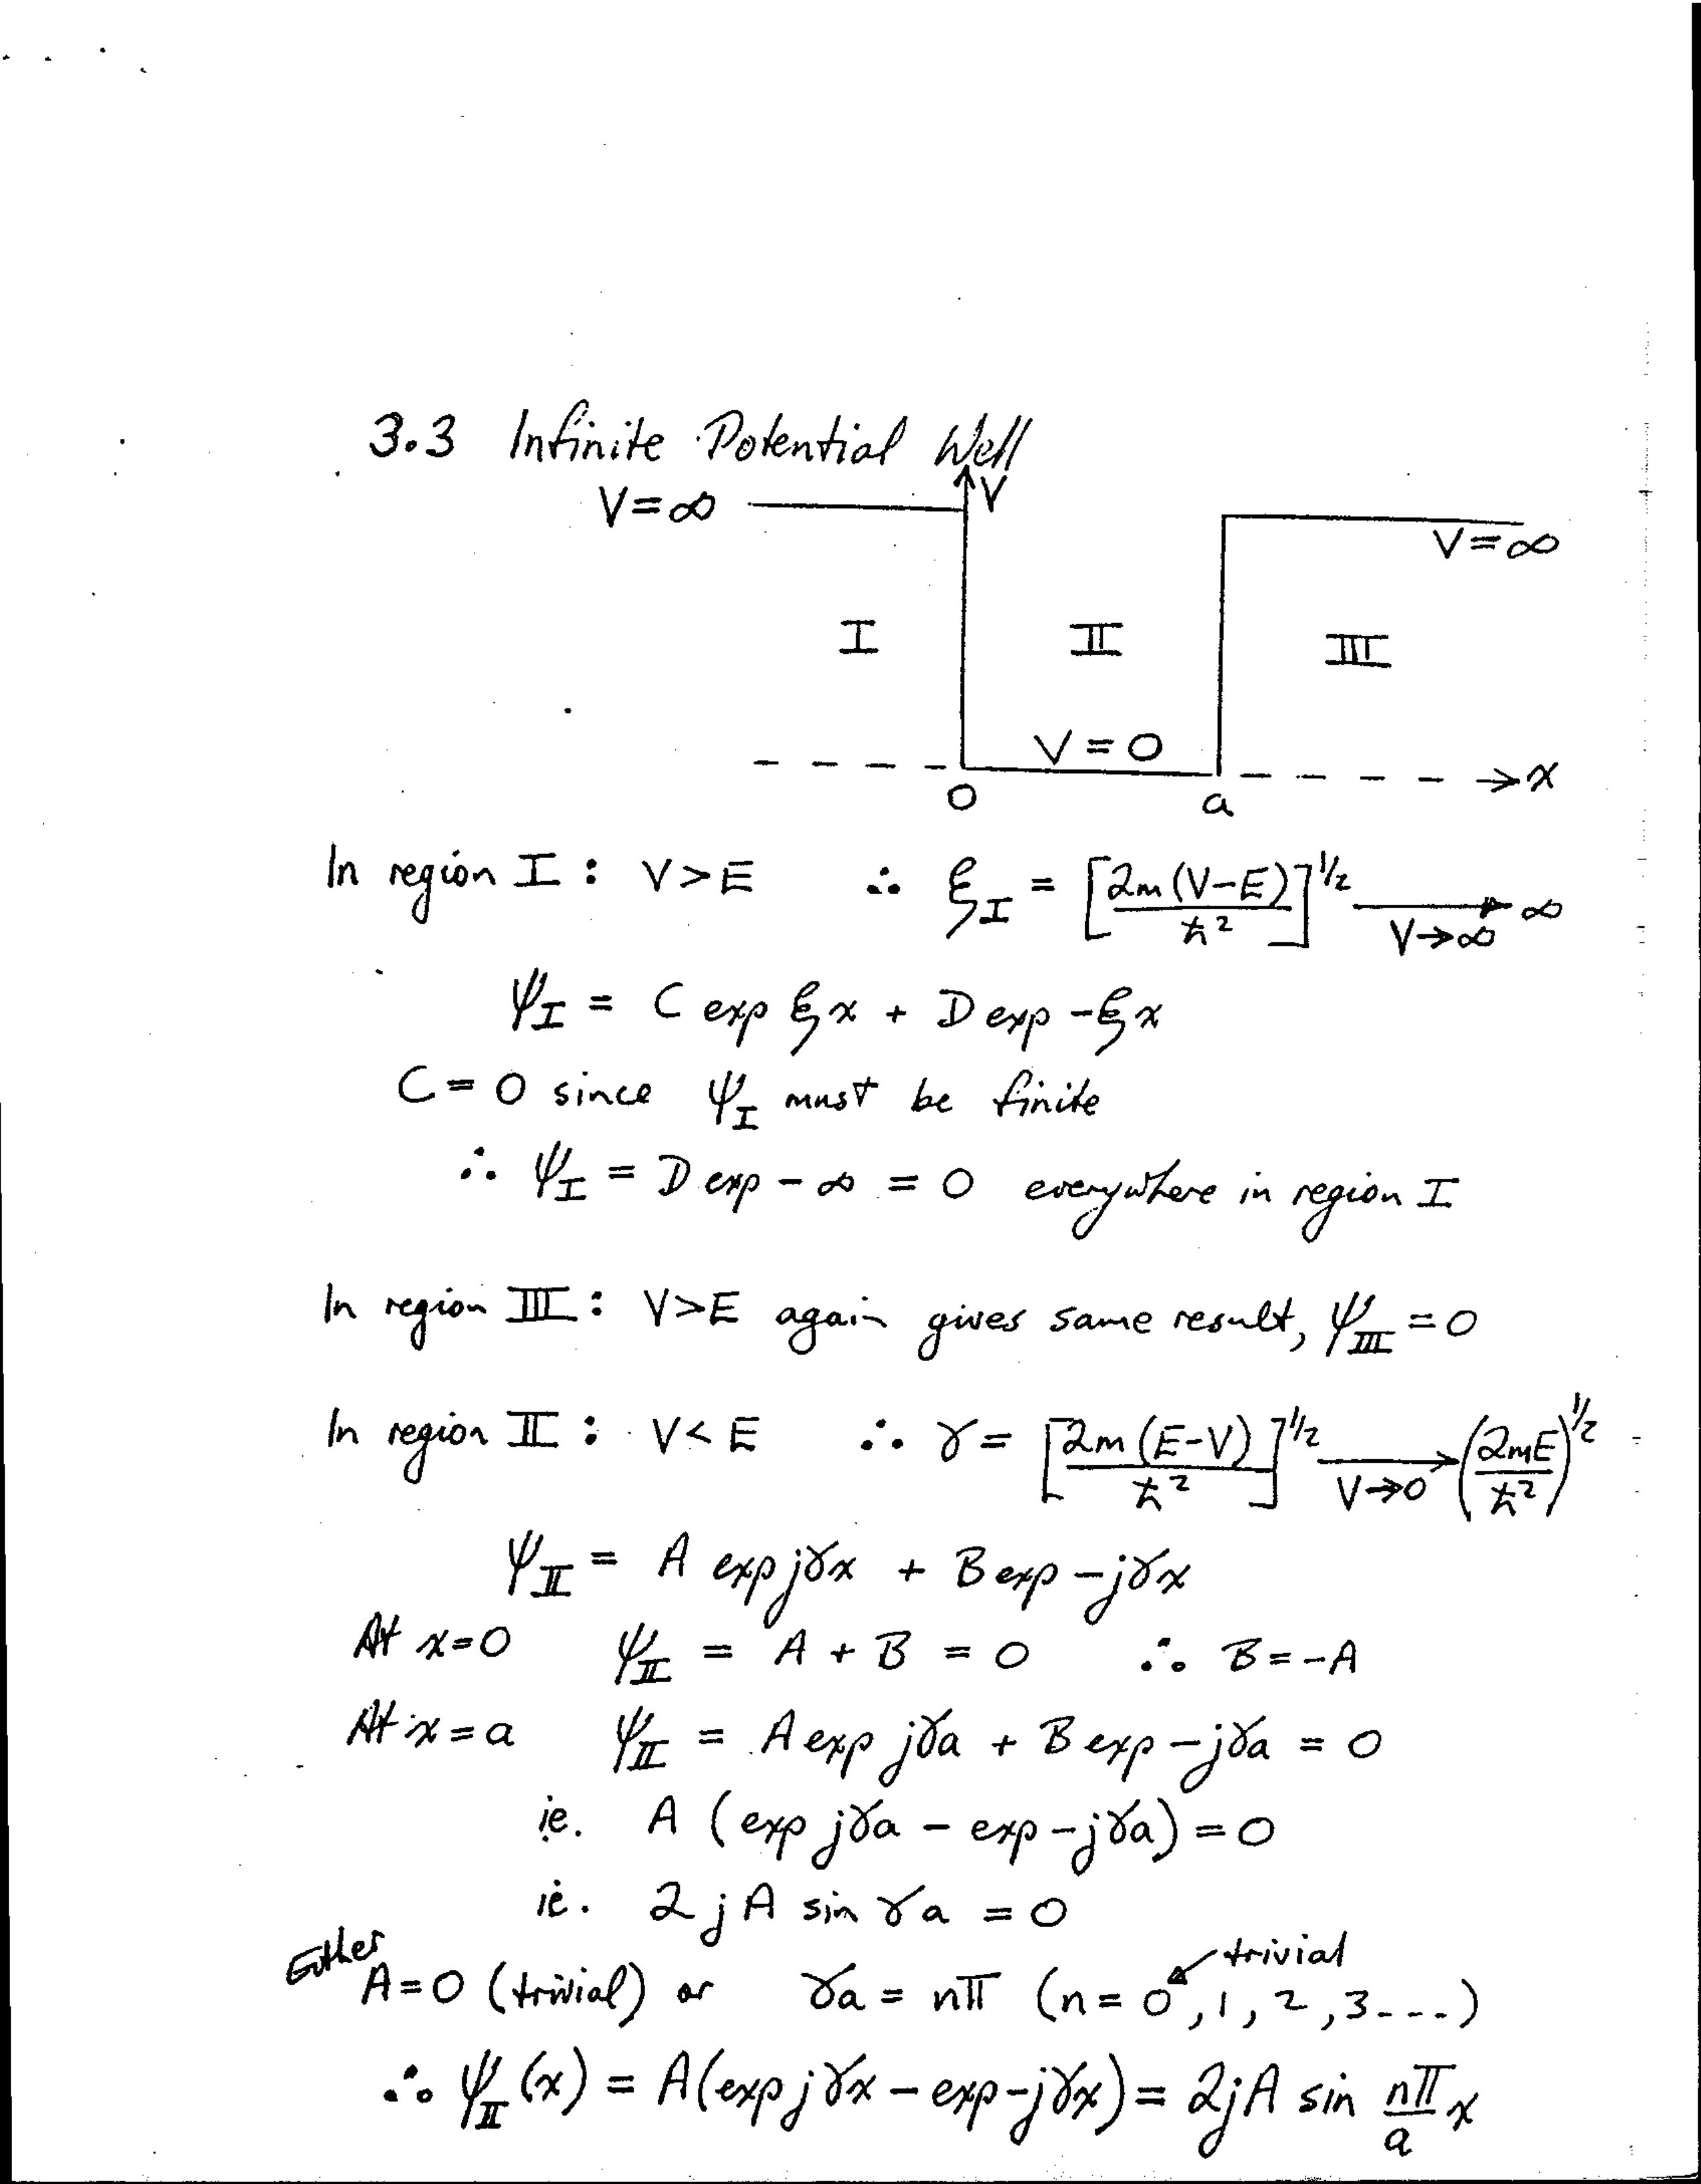 3.3 Infinite Potential Well
V=∞
V
V=∞
I
II
III
V=0
0
a
x
In region I: V>E ∴ ξ_I = [2m(V-E)/ℏ²]^½ → ∞ V→∞
ψ_I = C exp ξx + D exp -ξx
C=0 since ψ_I must be finite
∴ ψ_I = D exp -∞ = 0 everywhere in region I
In region III: V>E again gives same result, ψ_III = 0
In region II: V<E ∴ γ = [2m(E-V)/ℏ²]^½ → (2mE/ℏ²)^½ V→0
ψ_II = A exp jγx + B exp -jγx
At x=0 ψ_II = A + B = 0 ∴ B=-A
At x=a ψ_II = A exp jγa + B exp -jγa = 0
ie. A (exp jγa - exp -jγa) = 0
ie. 2jA sin γa = 0
trivial
Either
A=0 (trivial) or γa = nπ (n=0, 1, 2, 3---)
∴ ψ_II(x) = A(exp jγx - exp -jγx) = 2jA sin nπ/a x